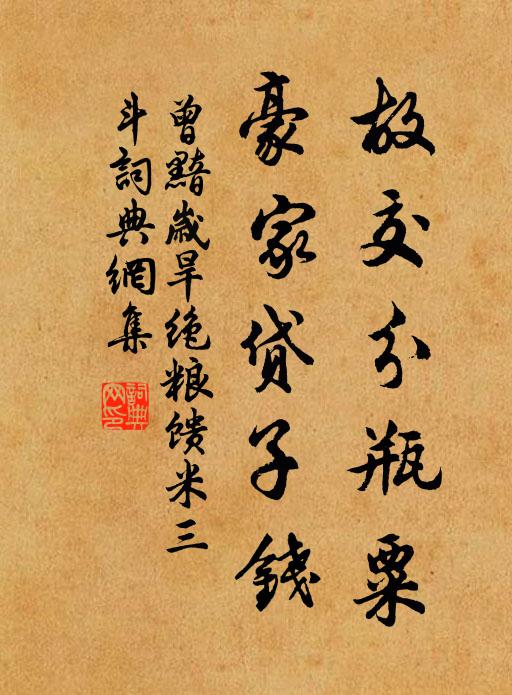 故交分瓶粟
豪家貸子錢
曾黯歲旱绝粮馈米三
斗詞典網集
詞典网印